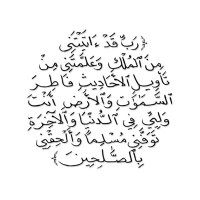 ﴿رَبِّ قَدْ ءَاتَيْتَنِى
مِنَ ٱلْمُلْكِ وَعَلَّمْتَنِى مِن
تَأْوِيلِ ٱلْأَحَادِيثِ فَاطِرَ
ٱلسَّمَٰوَٰتِ وَٱلْأَرْضِ أَنتَ
وَلِىِّۦ فِى ٱلدُّنْيَا وَٱلْآخِرَةِ
تَوَفَّنِى مُسْلِمًا وَأَلْحِقْنِى
بِٱلصَّٰلِحِينَ﴾